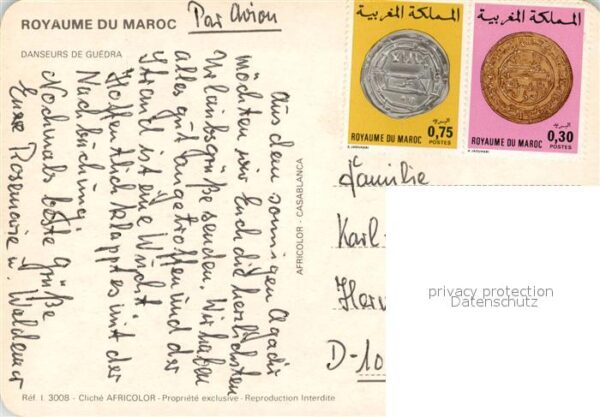 ROYAUME DU MAROC
DANSEURS DE GUÉDRA
Par Avion
المملكة المغربية
البريد
ROYAUME DU MAROC 0,75
POSTES
المملكة المغربية
البريد
ROYAUME DU MAROC 0,30
POSTES
Aus dem sonnigen Agadir
möchten wir Euch die herzlichsten
Urlaubsgrüße senden. Wir haben
alles gut angetroffen und der
Strand ist eine Wucht
Hoffentlich klappt es mit der
Nachbuchung
Nochmals beste Grüße
Eure Rosemarie u. Waldemar
AFRICOLOR - CASABLANCA
Familie
Karl-
Herr
D-10
privacy protection
Datenschutz
Réf. I. 3008 - Cliché AFRICOLOR - Propriété exclusive - Reproduction Interdite